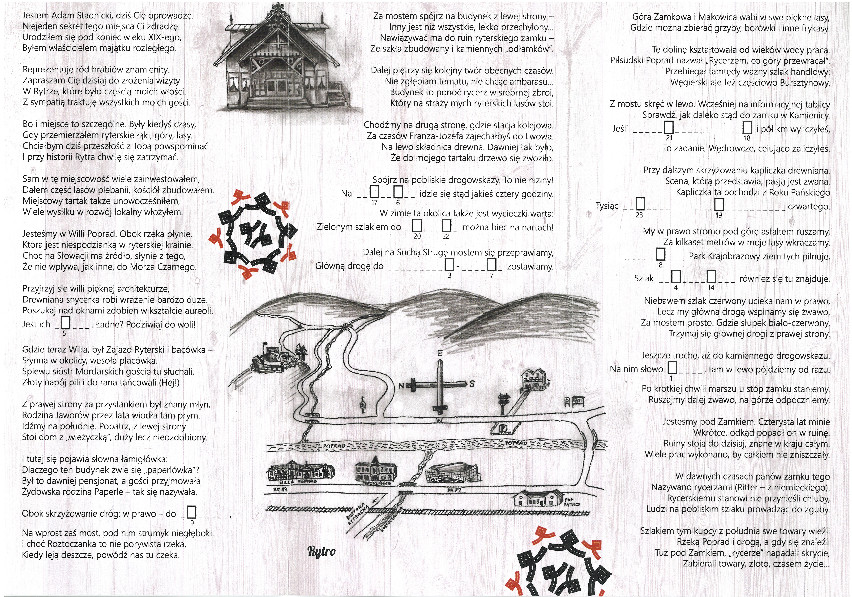 Jestem Adam Stadnicki, dziś Cię oprowadzę.
Niejeden sekret tego miejsca Ci zdradzę.
Urodziłem się pod koniec wieku XIX-ego,
Byłem właścicielem majątku rozległego.
Reprezentuję ród hrabiów znamienity.
Zapraszam Cię dzisiaj do złożenia wizyty
W Rytrze, które było częścią moich włości.
Z sympatią traktuję wszystkich moich gości.
Bo i miejsce to szczególne. Były kiedyś czasy,
Gdy przemierzałem ryterskie łąki, góry, lasy.
Chciałbym dziś przeszłość z Tobą powspominać
I przy historii Rytra chwilę się zatrzymać.
Sam w tę miejscowość wiele zainwestowałem,
Dałem część lasów plebanii, kościół zbudowałem.
Miejscowy tartak także unowocześniłem,
Wiele wysiłku w rozwój lokalny włożyłem.
Jesteśmy w Willi Poprad. Obok rzeka płynie,
Która jest niespodzianką w ryterskiej krainie.
Choć na Słowacji ma źródło, słynie z tego,
Że nie wpływa, jak inne, do Morza Czarnego.
Przyjrzyj się willi pięknej architekturze,
Drewniana snycerka robi wrażenie bardzo duże.
Poszukaj nad oknami zdobień w kształcie aureoli.
Jest ich , ładne? Podziwiaj do woli!
5
Gdzie teraz Willa, był Zajazd Ryterski i bacówka –
Słynna w okolicy, wesoła placówka.
Śpiewu sióstr Mordarskich gościu tu słuchali.
Złoty napój pili i do rana tańcowali (Hej!)
Z prawej strony za przystankiem był znany młyn.
Rodzina Jaworów przez lata wiodła tam prym.
Idźmy na południe. Popatrz, z lewej strony
Stoi dom z „wieżyczką”, duży lecz nieozdobiony.
I tutaj się pojawia słowna łamigłówka:
Dlaczego ten budynek zwie się „paperlówka”?
Był to dawniej pensjonat, a gości przyjmowała
Żydowska rodzina Paperle – tak się nazywała.
Obok skrzyżowanie dróg: w prawo – do
Na wprost zaś most, pod nim strumyk niegłęboki.
I choć Roztoczanka to nie porywista rzeka.
Kiedy leją deszcze, powódź nas tu czeka.
Za mostem spójrz na budynek z lewej strony –
Inny jest niż wszystkie, lekko przechylony...
Nawiązywać ma do ruin ryterskiego zamku –
Ze szkła zbudowany i kamiennych „odłamków”.
Dalej piętrzy się kolejny twór obecnych czasów.
Nie zgłębiam tematu, nie chcę ambarasu...
Budynek to ponoć rycerz w srebrnej zbroi,
Który na straży mych ryterskich lasów stoi.
Chodźmy na drugą stronę, gdzie stacja kolejowa.
Za czasów Franza-Josefa zajechałbyś do Lwowa.
Na lewo składnica drewna. Dawniej tak było,
Że do mojego tartaku drzewo się zwoziło.
Spójrz na pobliskie drogowskazy. To nie niziny!
Na idzie się stąd jakieś cztery godziny.
17 6
W zimie ta okolica także jest wycieczki warta:
Zielonym szlakiem do można biec na nartach!
20 22
Dalej na Suchą Strugę mostem się przeprawiamy,
Główną drogę do - zostawiamy.
3 7
E
N S
W
POPRAD
POPRAD
PKP
RYTRO
Rytro
Góra Zamkowa i Makowica wabi w swe piękne lasy,
Gdzie można zbierać grzyby, borówki i inne frykasy.
Tę dolinę kształtowała od wieków wody praca.
Piłsudski Poprad nazwał „Rycerzem, co góry przewracał”.
Przebiegał tamtędy ważny szlak handlowy:
Węgierski ale też częściowo Bursztynowy.
Z mostu skręć w lewo. Wcześniej na informacyjnej tablicy
Sprawdź, jak daleko stąd do zamku w Kamienicy.
Jeśli i pół km wyliczyłeś,
21 18
To zadanie, Wędrowcze, celująco zaliczyłeś.
Przy dalszym skrzyżowaniu kapliczka drewniana.
Scena, którą przedstawia, pasją jest zwana.
Kapliczka ta pochodzi z Roku Pańskiego
Tysiąc czwartego.
23 19
My w prawo stromo pod górę asfaltem ruszamy.
Za kilkaset metrów w moje lasy wkraczamy.
Park Krajobrazowy ziem tych pilnuje.
8
Szlak również się tu znajduje.
4 14
Niebawem szlak czerwony ucieka nam w prawo,
Lecz my główną drogą wspinamy się żwawo.
Za mostem prosto. Gdzie słupek biało-czerwony,
Trzymaj się głównej drogi z prawej strony.
Jeszcze trochę, aż do kamiennego drogowskazu.
Na nim słowo , tam w lewo pójdziemy od razu.
Po krótkiej chwili marszu u stóp zamku staniemy.
Ruszajmy dalej żwawo, na górze odpoczniemy.
Jesteśmy pod Zamkiem. Czterysta lat minie
Wkrótce, odkąd popadł on w ruinę.
Ruiny stoją do dzisiaj, znane w kraju całym.
Wiele prac wykonano, by całkiem nie zniszczały.
W dawnych czasach panów zamku tego
Nazywano rycerzami (Ritter – z niemieckiego).
Rycerskiemu stanowi nie przynieśli chluby,
Ludzi na pobliskim szlaku prowadząc do zguby.
Szlakiem tym kupcy z południa swe towary wieźli
Rzeką Poprad i drogą, a gdy się znaleźli
Tuż pod Zamkiem, „rycerze” napadali skrycie,
Zabierali towary, złoto, czasem życie...